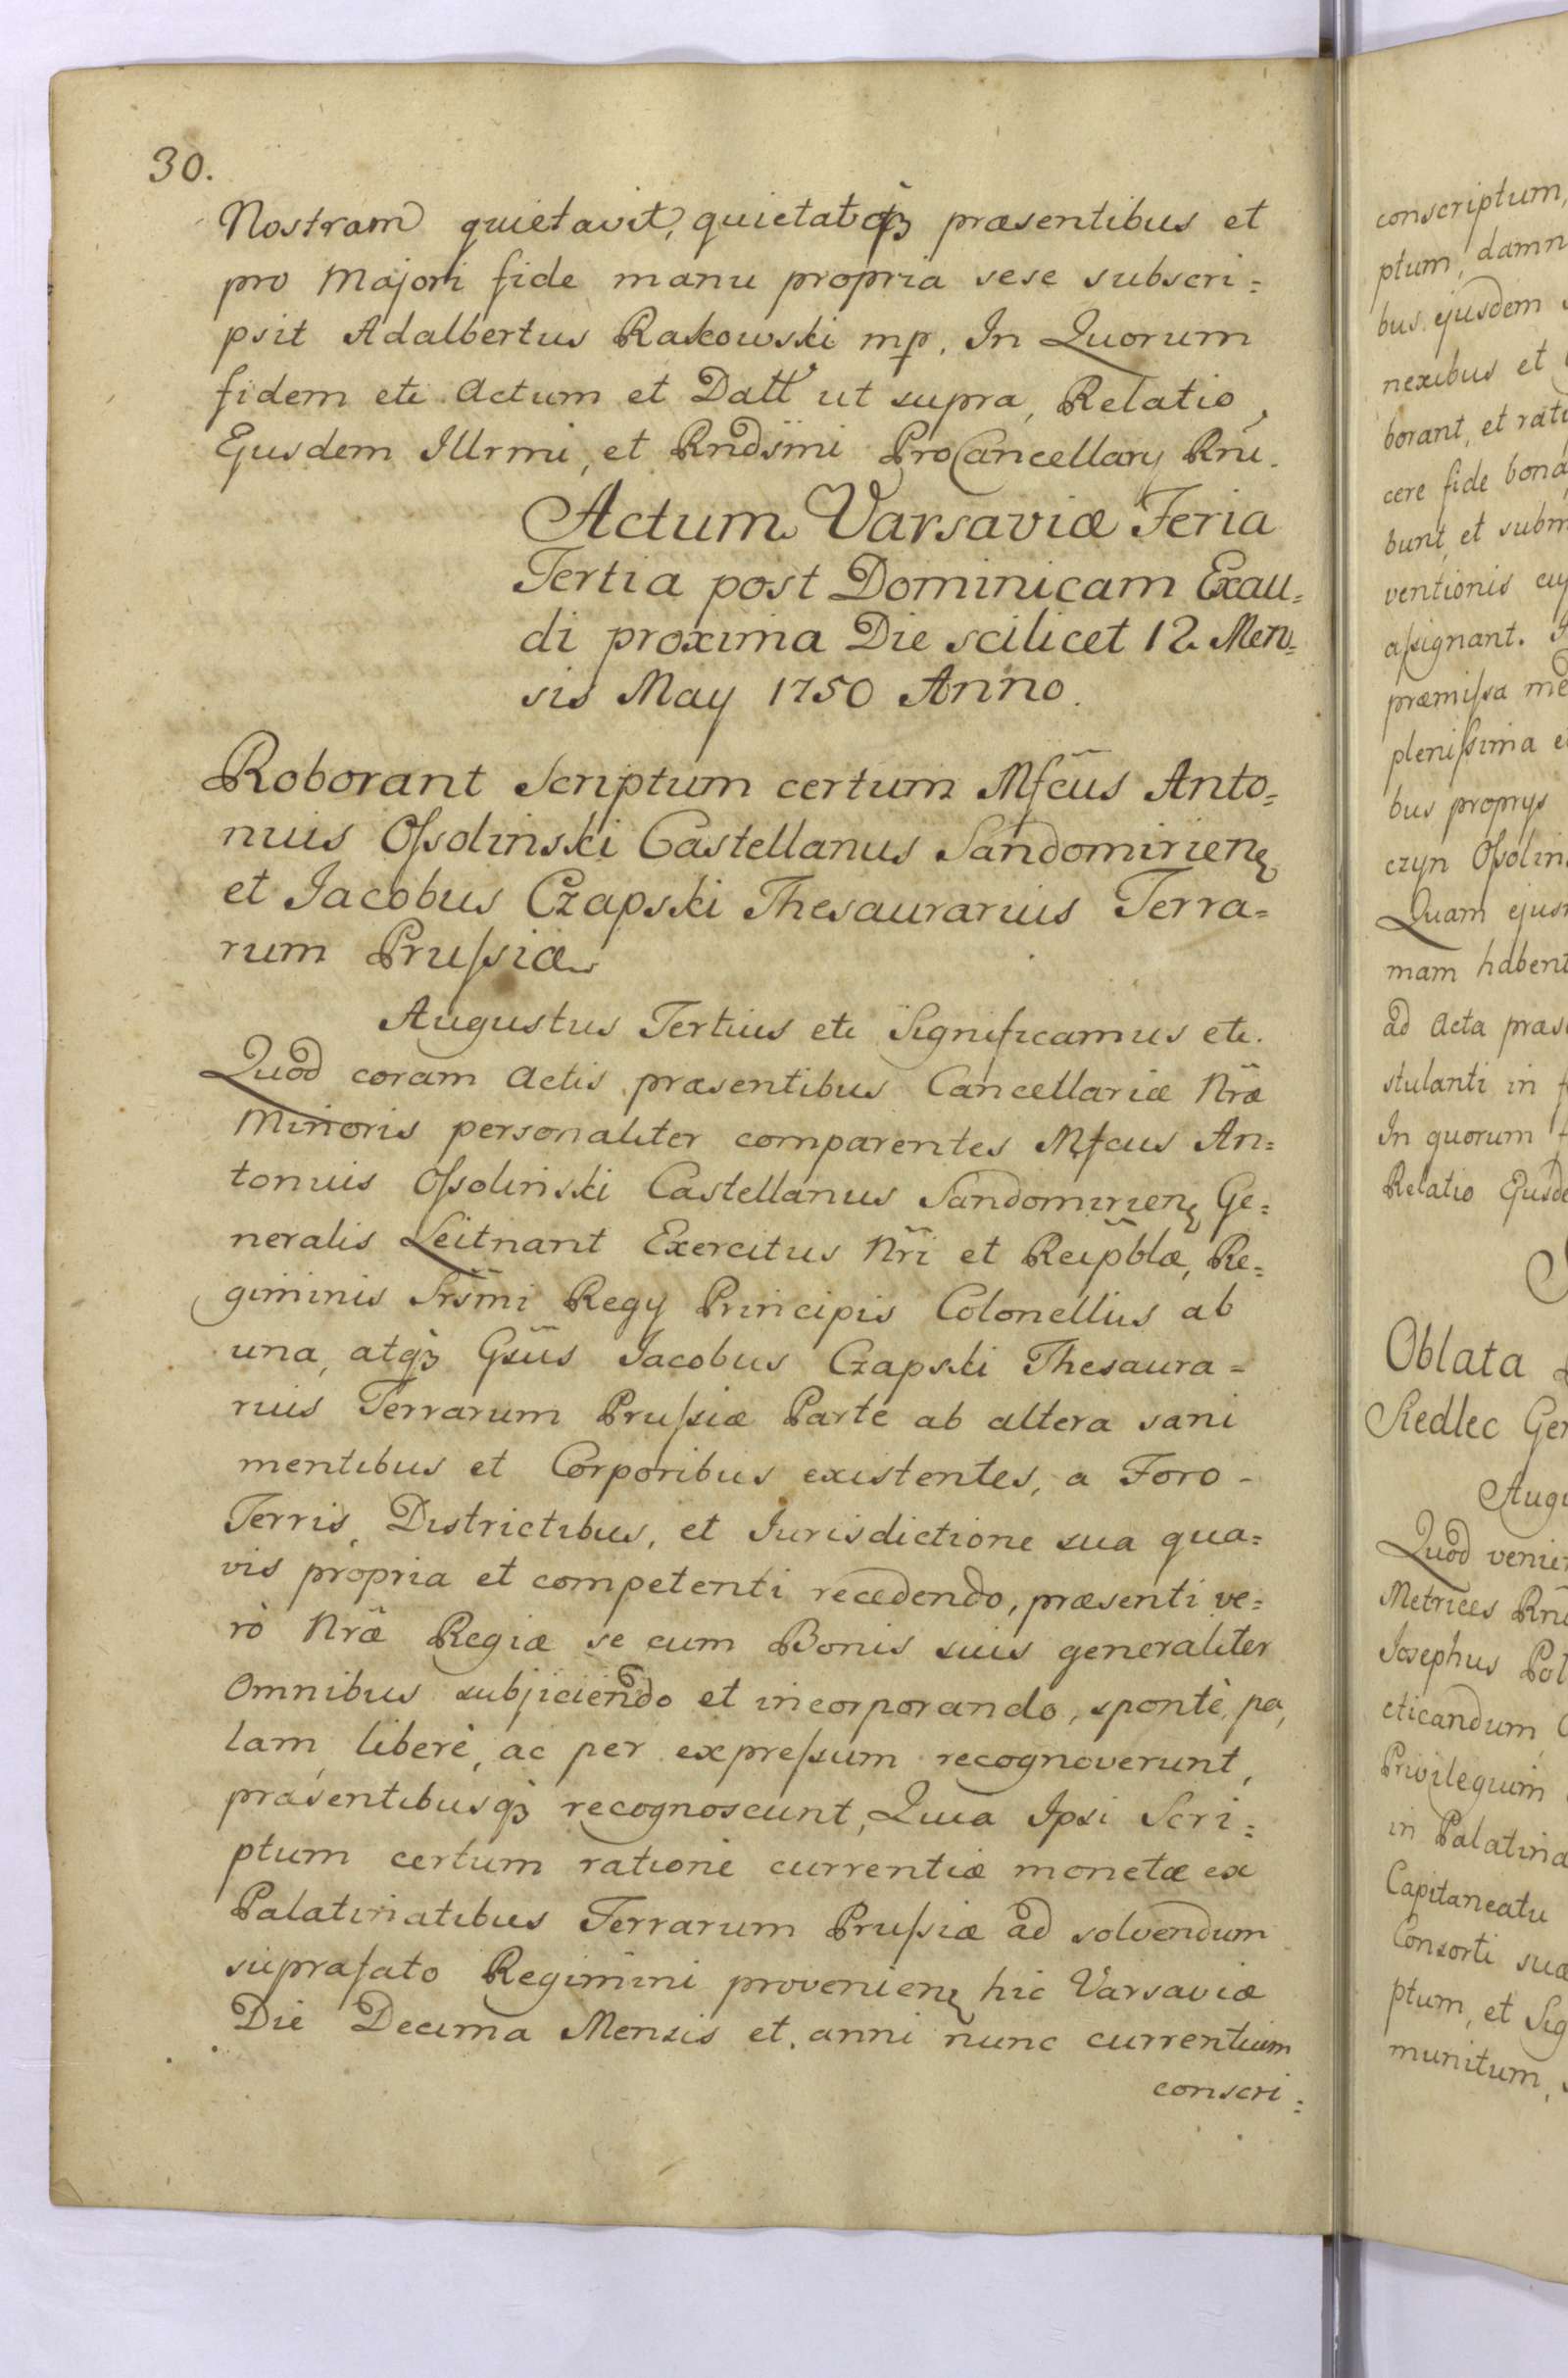 30.
Nostram quietavit, quietatq̃ꝫ præsentibus et
pro Majori fide manu propria sese subscri=
psit Adalbertus Rakowski mp. In Quorum
fidem etc Actum et Datt ut supra, Relatio
Ejusdem Illrmi, et Rndsmi ProCancellarÿ Rñi.
Actum Varsaviæ Feria
Tertia post Dominicam Exau=
di proxima Die scilicet 12. Men=
sis May 1750 Anno.
Roborant Scriptum certum Mfcũs Anto=
nius Oſsolinski Castellanus Sandomirienꝫ
et Jacobus Czapski Thesaurarius Terra=
rum Pruſsiæ
Augustus Tertius etc Significamus etc.
Quod coram Actis præsentibus Cancellariæ Nrǣ
Minoris personaliter comparentes Mfcus An=
tonius Oſsolinski Castellanus Sandomirienꝫ Ge=
neralis Leitnant Exercitus Nrĩ et Reipb̃læ, Re=
giminis Srs̃mi Regÿ Principis Colonellus ab
una, atqꝫ Gsũs Jacobus Czapski Thesaura=
rius Terrarum Pruſsiæ Parte ab altera sani
mentibus et Corporibus existentes, a Foro-
Terris, Districtibus, et Jurisdictione sua qua=
vis propria et competenti recedendo, præsenti ve=
rò Nrǣ Regiæ se cum Bonis suis generaliter
Omnibus subjiciendo et incorporando, spontè, pa,
lam, liberè, ac per expreſsum recognoverunt,
præsentibusqꝫ recognoscunt, Quia Ipsi Scri=
ptum certum ratione currentiæ monetæ ex
Palatinatibus Terrarum Pruſsiæ ad solvendum
suprafato Regimini provenienꝫ hic Varsaviæ
Die Decima Mensis et. anni nunc currentium
conscri=
conscriptum,
ptum, damn
bus ejusdem
nexibus et
borant, et rati
cere fide bona
bunt, et subm
ventionis cuj
aſsignant.
præmiſsa
pleniſsima
bus proprÿs
czyn Oſsolin
Quam ejus
mam habent
ad Acta præs
stulanti in
In quorum
Relatio Ejusde
Oblata
Siedlec Gen
Augu
Quod venien
Metrices Rni
Josephus Pot
cticandum
Privilegium
in Palatina
Capitaneatu
Consorti suæ
ptum, et Sig
munitum,